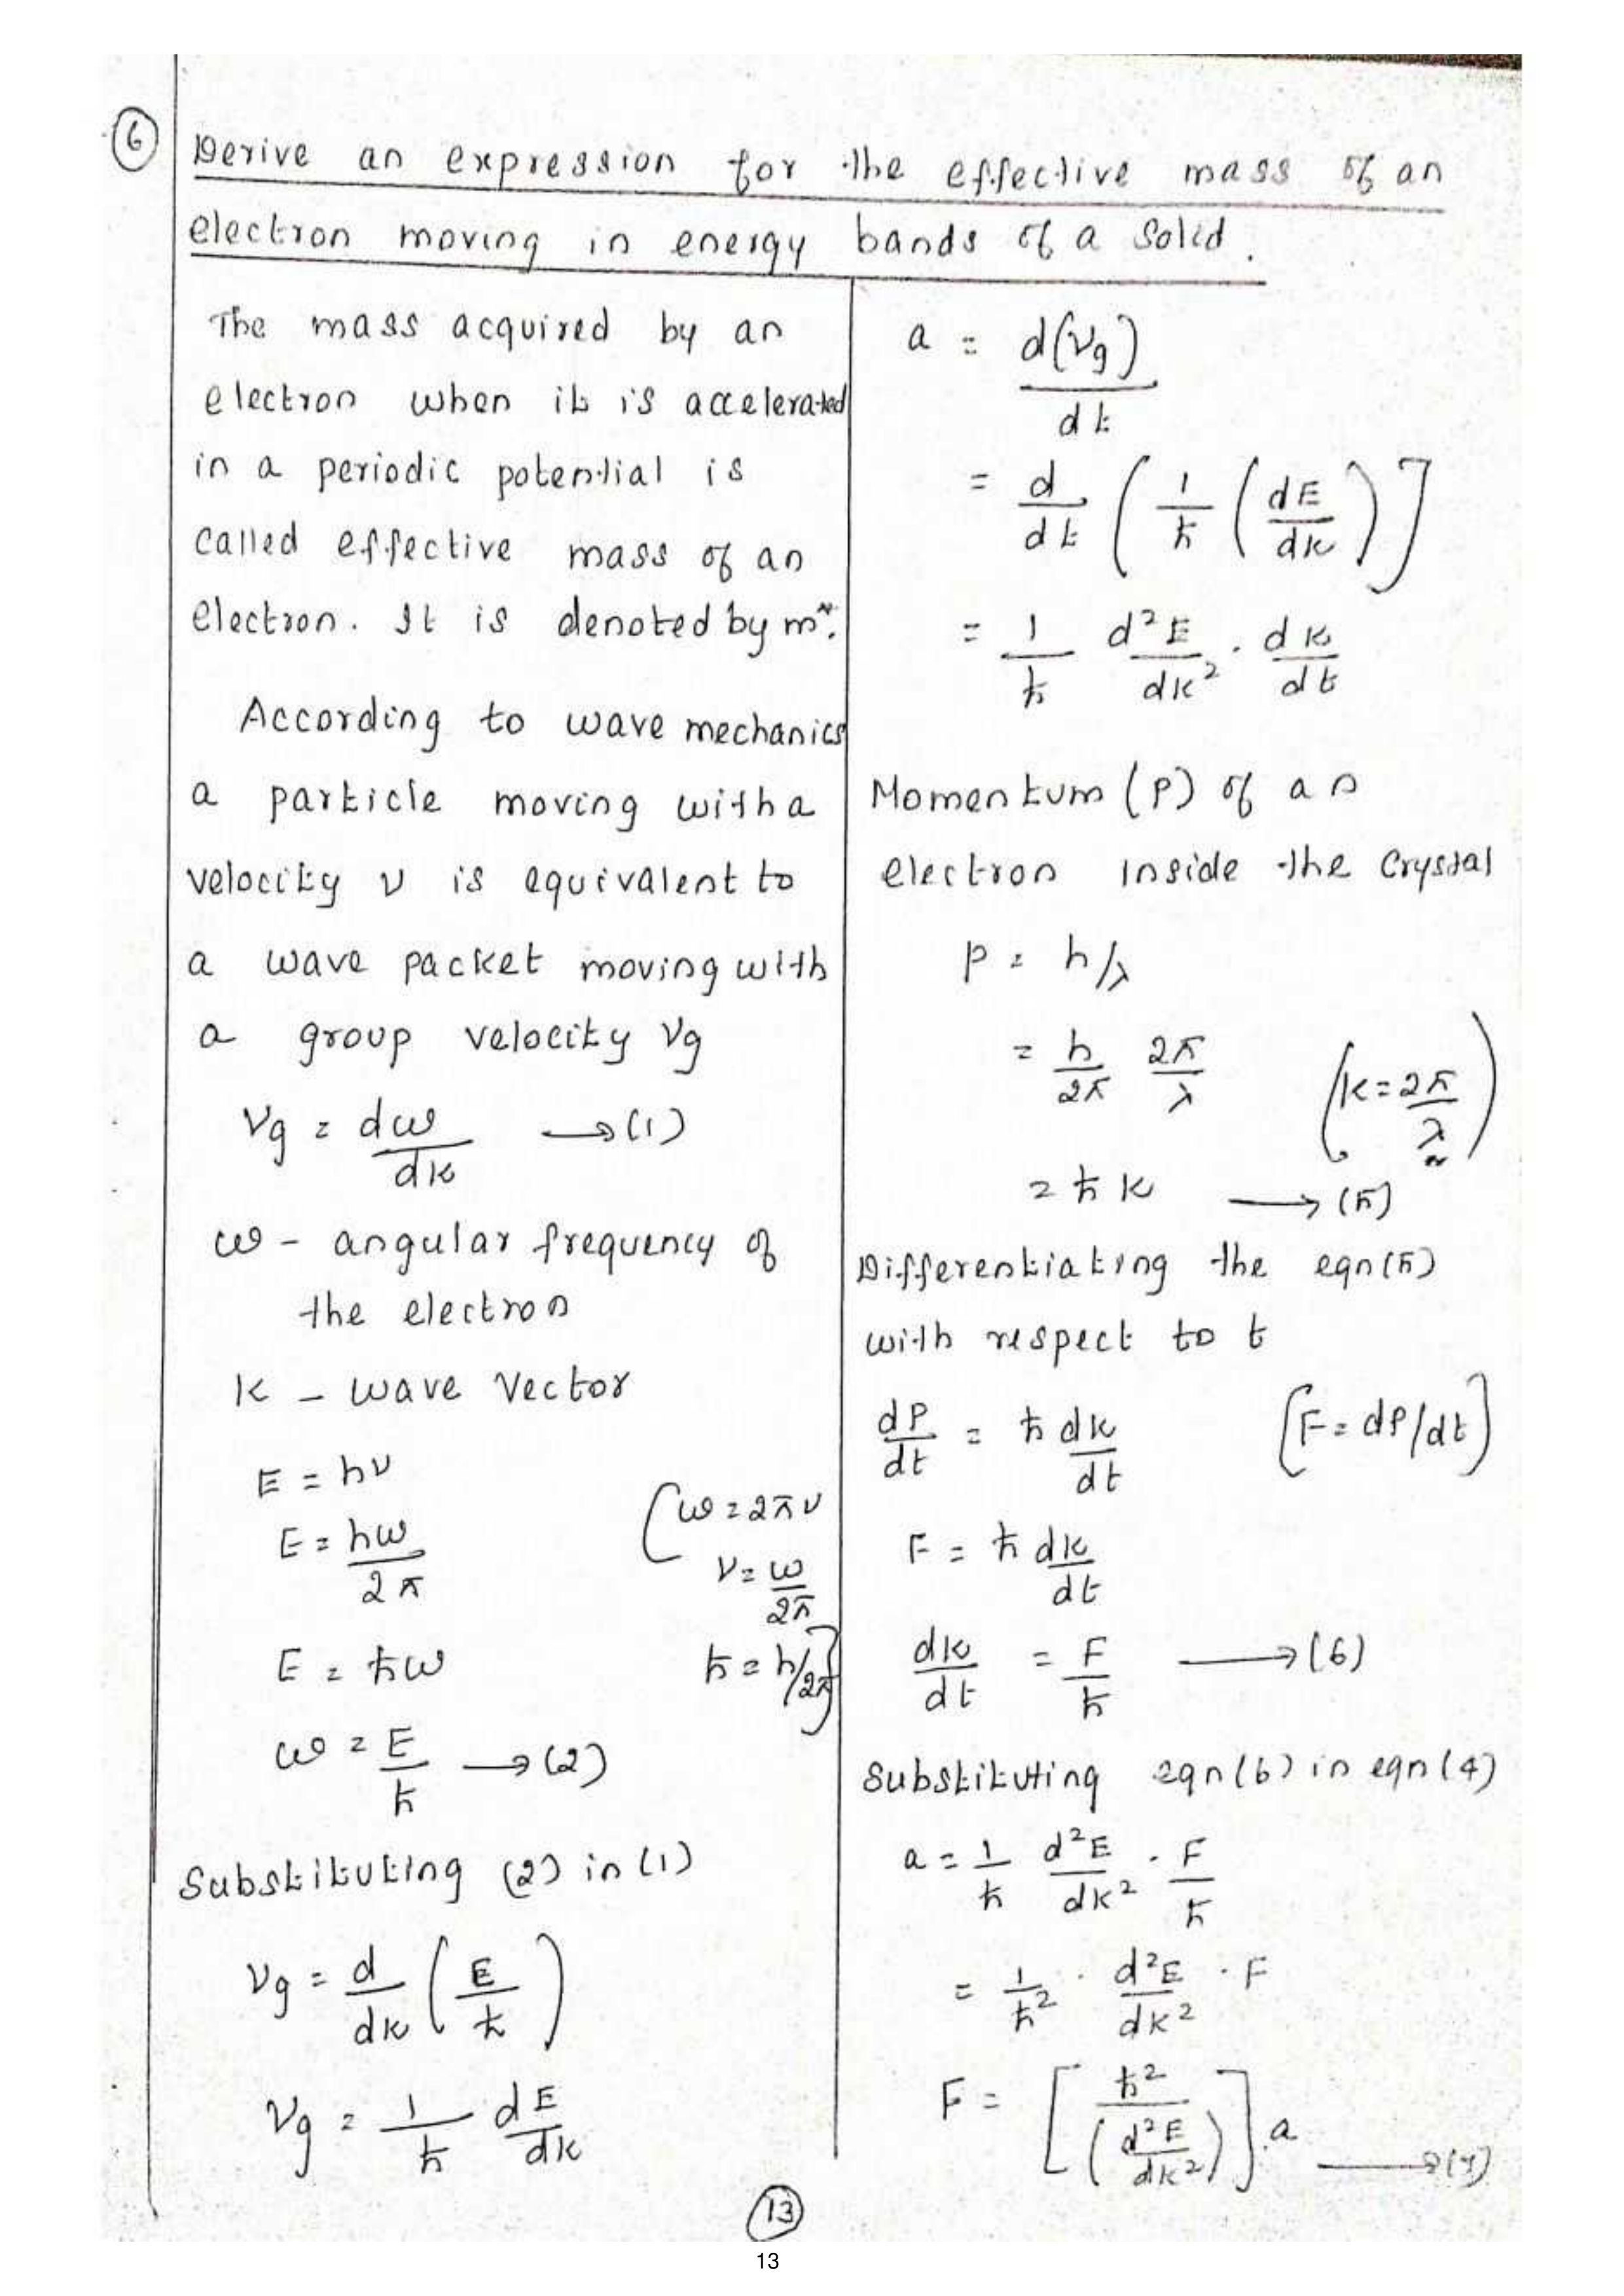 6
Derive an expression for the effective mass of an
electron moving in energy bands of a solid.
The mass acquired by an
electron when it is accelerated
in a periodic potential is
called effective mass of an
electron. It is denoted by m*.
According to wave mechanics
a particle moving with a
velocity v is equivalent to
a wave packet moving with
a group velocity vg
vg = dω/dk → (1)
ω - angular frequency of
the electron
k - wave vector
E = hν
E = hω/2π (ω = 2πν
ν = ω/2π
E = ħω ħ = h/2π)
ω = E/ħ → (2)
Substituting (2) in (1)
vg = d/dk (E/ħ)
vg = 1/ħ dE/dk
a = d(vg)/dt
= d/dt (1/ħ (dE/dk)]
= 1/ħ d²E/dk² . dk/dt
Momentum (P) of an
electron inside the crystal
p = h/λ
= h/2π 2π/λ (k = 2π/λ)
= ħk → (5)
Differentiating the eqn (5)
with respect to t
dP/dt = ħ dk/dt [F = dP/dt]
F = ħ dk/dt
dk/dt = F/ħ → (6)
Substituting eqn (6) in eqn (4)
a = 1/ħ d²E/dk² . F/ħ
= 1/ħ² . d²E/dk² . F
F = [ħ²/(d²E/dk²)] a → (7)
13
13